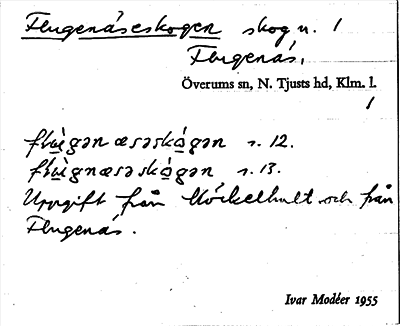 Flugenäseskogen skog n. 1
Flugenäs,
Överums sn, N. Tjusts hd, Klm. l.
1
flɯ̀gən æsəskógən s. 12.
flɯ̀gnæsəskógən s. 13.
Uppgift från Mörkelhult och från
Flugenäs.
Ivar Modéer 1955